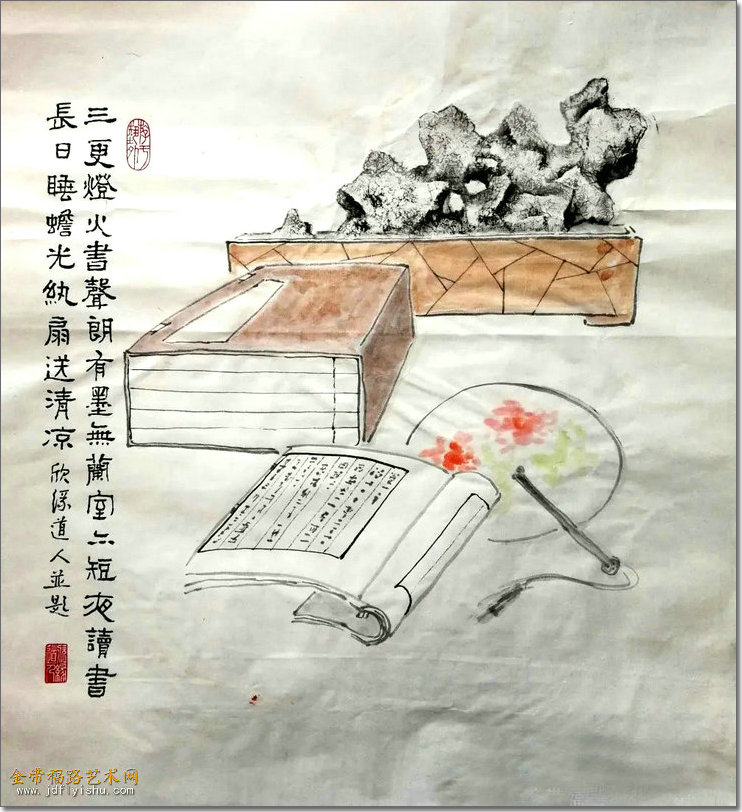 三更燈火書聲朗有墨無蘭室短夜讀書
長日睡蟾光紈扇送清凉
欣道人並題
金带福路艺术网
www.jdflyishu.com